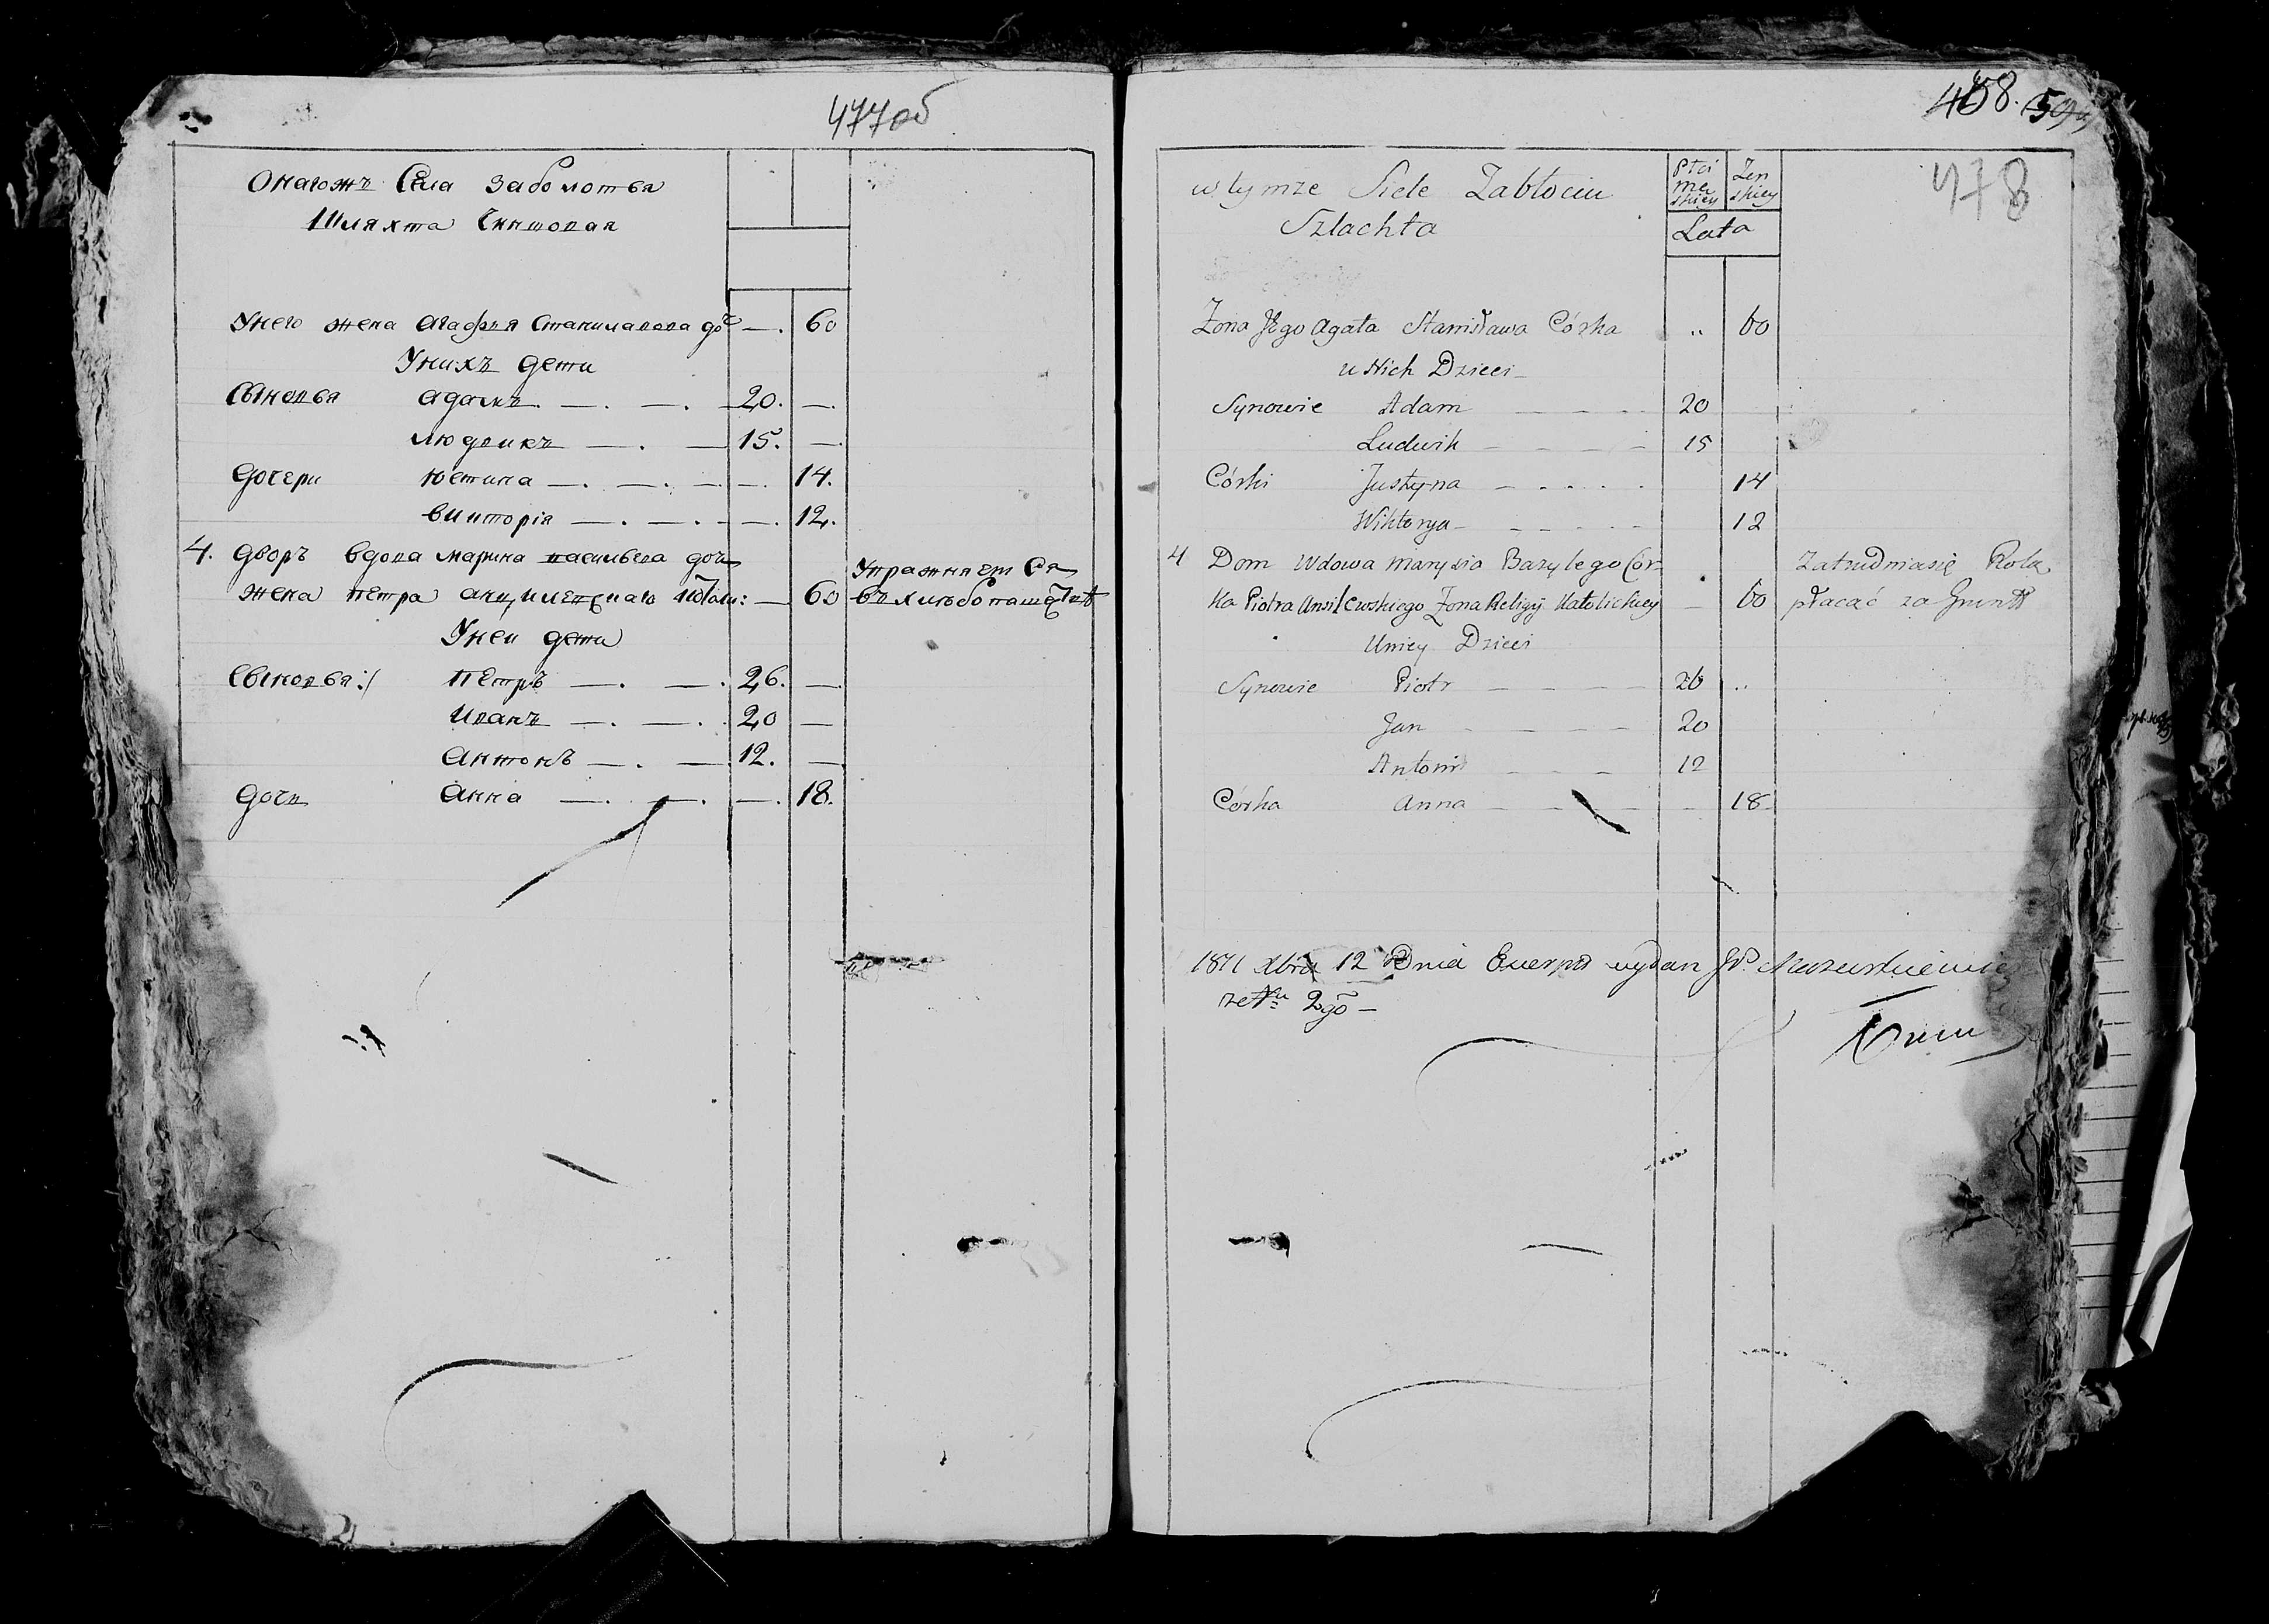 477об
Онагожъ Села Заболотья
Шляхта Чиншовая
Унего жена Агафия Станиславова доч — . 60
Унихъ дети
Сыновья Адамъ — . — . 20. —
Людвикъ — . — 15. —
Дочери Юстина — . — . — . — . 14.
Викторія — . — . — — . 12.
4. Дворъ Вдова Марина Васильева дочь
Упражняетъ Ся
жена Петра Анцилевскаго — 60 въ хлебопашестве
Уней дети
Сыновья :/ Петръ — . — . 26. —
Иванъ — . — . 20 —
Антонъ — . — 12. —
Дочь Анна — . — . — . 18.
458.
478
w tymze Siele Zabłociu
Szlachta
Płci męskiey
Zenskiey
Lata
Zona Jego Agata Stanisława Córka „ 60
u Nich Dzieci
Synowie Adam — — — 20
Ludwik — — — — 15
Córki Justyna — . . . . 14
Wiktorya — — — — — 12
4 Dom Wdowa Marysia Bazylego Cór= Zatrudnia się Rolą
ka Piotra Ansilewskiego Zona Religij Katolickiey — 60 płacąc za Grunt
U niey Dzieci
Synowie Piotr — — — — 26 „
Jan — — — — 20
Antoni — — — 12
Córka Anna — — — — — 18
1811 Xbra 12 Dnia Exerpt wydan JP.
ze Nru 2go —